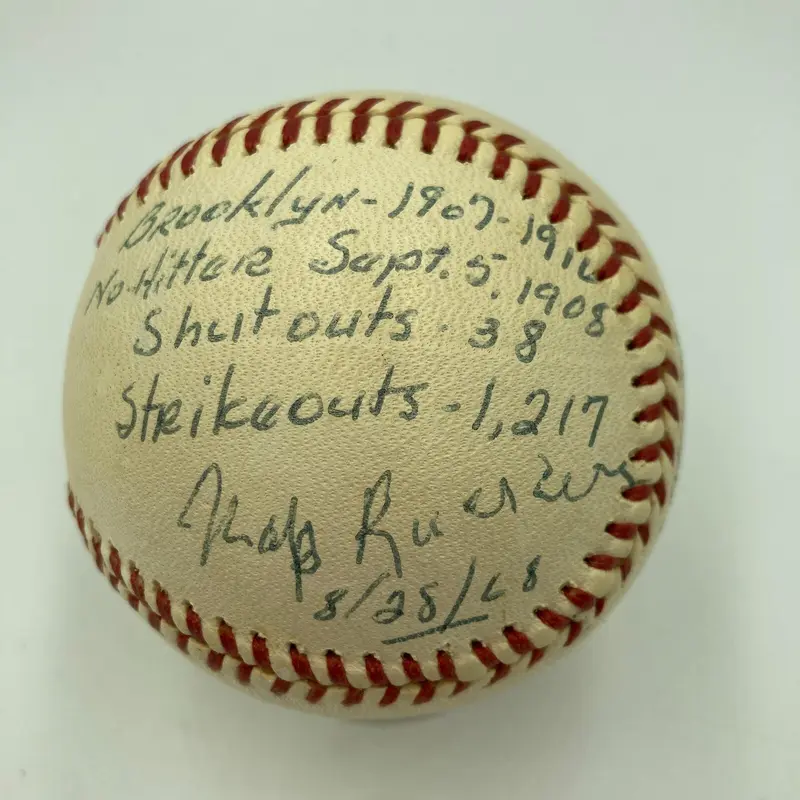 Brooklyn - 1907-1916
No-Hitter Sept. 5, 1908
Shutouts - 38
Strikeouts - 1,217
Nap Rucker
8/28/68